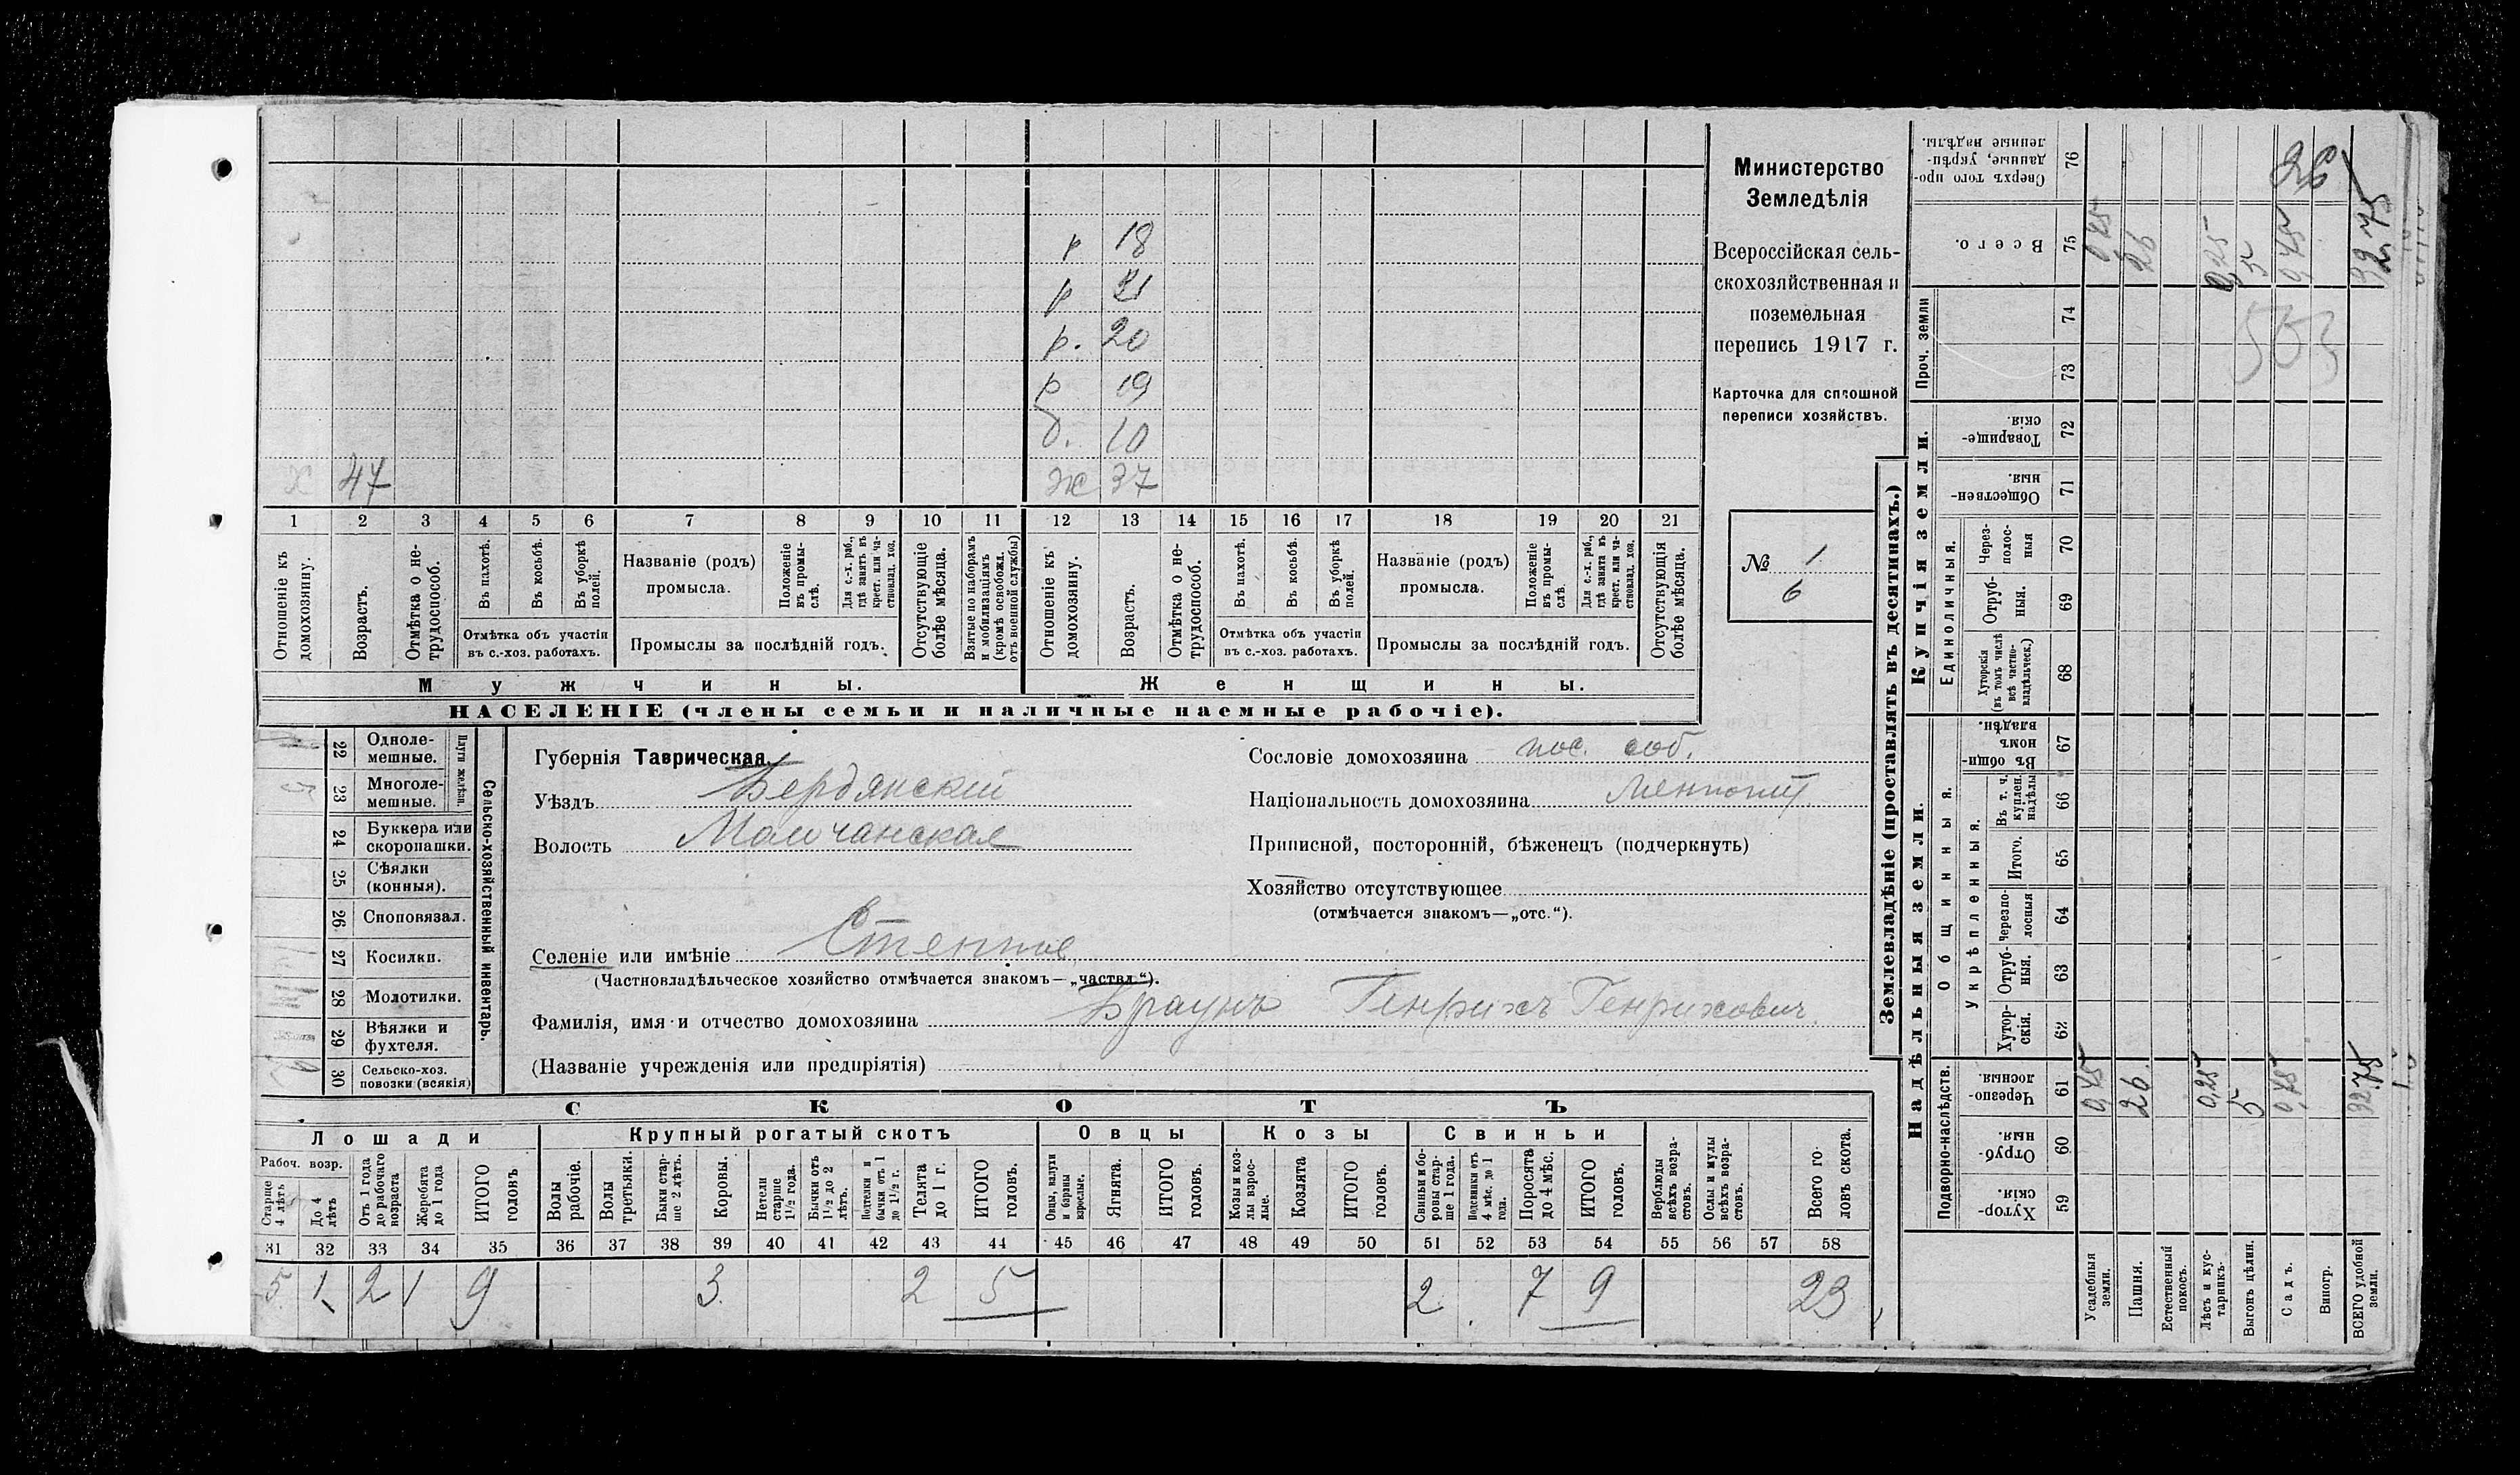 р 18
р
р. 20
р 19
б. 10
х 47
ж 37
1 2 3 4 5 6 7 8 9 10 11 12 13 14 15 16 17 18 19 20 21
Отношеніе къ домохозяину.
Возрастъ.
Отмѣтка о не-трудоспособ.
Въ пахотѣ.
Въ косьбѣ.
Въ уборкѣ полей.
Отмѣтка объ участіи
въ с.-хоз. работахъ.
Названіе (родъ)
промысла.
Положеніе въ промы-слѣ.
Для с.-х. раб., гдѣ занятъ въ крест. или ча-стновлад. хоз.
Промыслы за послѣдній годъ.
Отсутствующіе болѣе мѣсяца.
Взятые по наборамъ и мобилизаціямъ (кромѣ освобожд. отъ военной службы)
Отношеніе къ домохозяину.
Возрастъ.
Отмѣтка о не-трудоспособ.
Въ пахотѣ.
Въ косьбѣ.
Въ уборкѣ полей.
Отмѣтка объ участіи
въ с.-хоз. работахъ.
Названіе (родъ)
промысла.
Положеніе въ промы-слѣ.
Для с.-х. раб., гдѣ занята въ крест. или ча-стновлад. хоз.
Промыслы за послѣдній годъ.
Отсутствующія болѣе мѣсяца.
Мужчины.
Женщины.
НАСЕЛЕНІЕ (члены семьи и наличные наемные рабочіе).
Министерство
Земледѣлія
Всероссійская сель-
скохозяйственная и
поземельная
перепись 1917 г.
Карточка для сплошной
переписи хозяйствъ.
№ 1
6
22 Одноле-мешные.
23 Многоле-мешные.
Плуги желѣзн.
24 Буккера или скоропашки.
25 Сѣялки (конныя).
26 Сноповязал.
27 Косилки.
28 Молотилки.
29 Вѣялки и фухтеля.
30 Сельско-хоз. повозки (всякія)
Сельско-хозяйственный инвентарь.
Губернія Таврическая.
Уѣздъ Бердянскій
Волость Молочанская
Селеніе или имѣніе Степное
(Частновладѣльческое хозяйство отмѣчается знакомъ—„частвл.“).
Фамилія, имя и отчество домохозяина Браунъ Генрихъ Генрихович.
(Названіе учрежденія или предпріятія)
Сословіе домохозяина пос. соб.
Національность домохозяина Меннонит
Приписной, посторонній, бѣженецъ (подчеркнуть)
Хозяйство отсутствующее
(отмѣчается знакомъ—„отс.“).
СКОТЪ
Лошади
Крупный рогатый скотъ
Овцы
Козы
Свиньи
Рабоч. возр.
Старше 4 лѣтъ
До 4 лѣтъ
Отъ 1 года до рабочаго возраста
Жеребята до 1 года
ИТОГО головъ
Волы рабочіе.
Волы третьяки.
Быки стар-ше 2 лѣтъ.
Коровы.
Нетели старше 1½ года.
Бычки отъ 1½ до 2 лѣтъ.
Подтелки и бычки отъ 1 до 1½ г.
Телята до 1 г.
ИТОГО головъ.
Овцы, валухи и бараны взрослые.
Ягнята.
ИТОГО головъ.
Козы и коз-лы взрос-лые.
Козлята
ИТОГО головъ.
Свиньи и бо-ровы стар-ше 1 года.
Подсвинки отъ 4 мѣс. до 1 года.
Поросята до 4 мѣс.
ИТОГО головъ.
Верблюды всѣхъ возра-стовъ.
Ослы и мулы всѣхъ возра-стовъ.
Всего го-ловъ скота.
31 32 33 34 35 36 37 38 39 40 41 42 43 44 45 46 47 48 49 50 51 52 53 54 55 56 57 58
5 1 2 1 9 3 2 5 2 7 9 23
Землевладѣніе (проставлять въ десятинахъ.)
Надѣльныя земли.
Купчія земли.
Проч. земли
Подворно-наслѣдств.
Общинныя.
Укрѣпленныя.
Единоличныя.
Хутор-скія. 59
Отруб-ныя. 60
Черезпо-лосныя. 61
Хутор-скія. 62
Отруб-ныя. 63
Черезпо-лосныя 64
Итого. 65
Въ т. ч. куплен. надѣлы 66
Въ общи-номъ владѣн. 67
Хуторскія (въ томъ числѣ всѣ частно-владѣльческ.) 68
Отруб-ныя. 69
Через-полос-ныя 70
Обществен-ныя. 71
Товарище-скія. 72
73
74
Всего. 75
Сверхъ того про-данные, укрѣп-ленные надѣлы. 76
Усадебныя земли.
Пашня. 26 26
Естественный покосъ.
Лѣсъ и кус-тарникъ. 0,25 0,25
Выгонъ цѣлин. 5 5
Садъ.
Виногр.
ВСЕГО удобной земли. 32.75 32.75
26
503